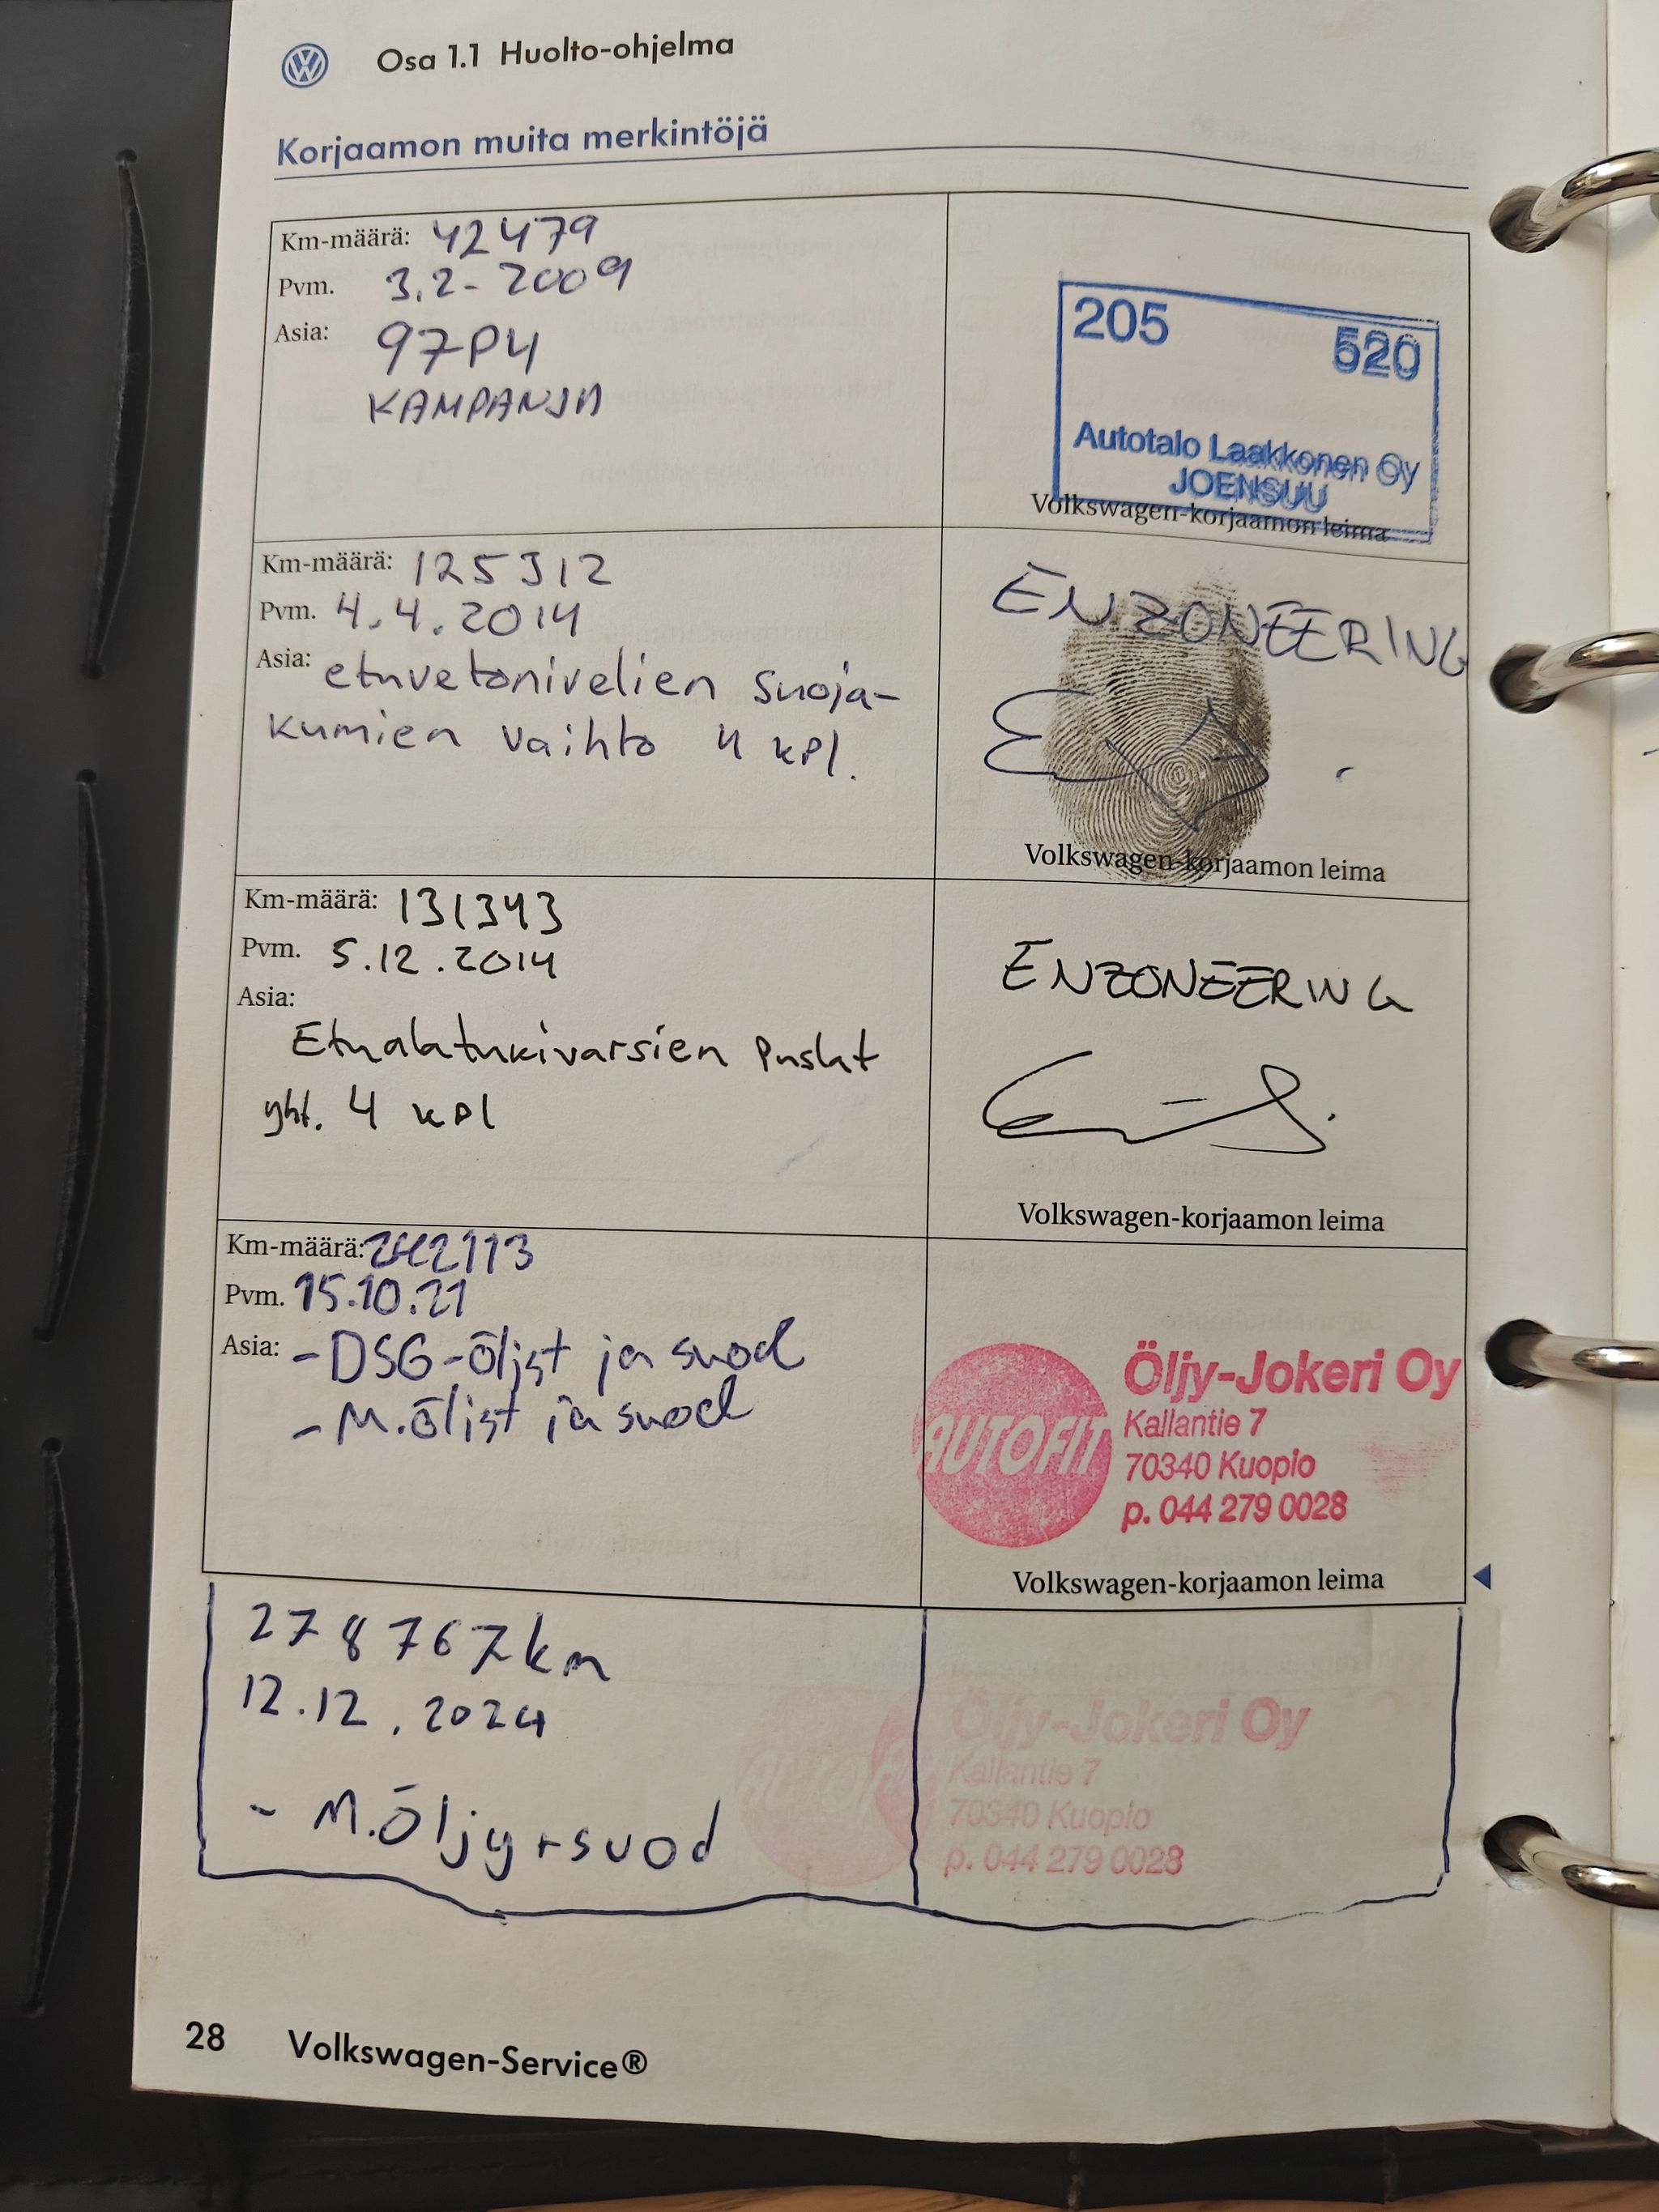 Osa 1.1 Huolto-ohjelma
Korjaamon muita merkintöjä
Km-määrä: 42479
Pvm. 3.2-2009
Asia: 97P4
KAMPANJA
205 520
Autotalo Laakkonen Oy
JOENSUU
Volkswagen-korjaamon leima
Km-määrä: 125312
Pvm. 4.4.2014
Asia: etuvetonivelien suoja-
kumien vaihto 4 kpl.
ENZONEERING
Volkswagen-korjaamon leima
Km-määrä: 131343
Pvm. 5.12.2014
Asia:
Etualatukivarsien puslat
yht. 4 kpl
ENZONEERING
Volkswagen-korjaamon leima
Km-määrä:
Pvm. 15.10.21
Asia: - DSG-öljyt ja suod
- M.öljyt ja suod
AUTOFIT
Öljy-Jokeri Oy
Kallantie 7
70340 Kuopio
p. 044 279 0028
Volkswagen-korjaamon leima
278767km
12.12.2024
- M.Öljy+suod
AUTOFIT
Öljy-Jokeri Oy
Kallantie 7
70340 Kuopio
p. 044 279 0028
28 Volkswagen-Service®